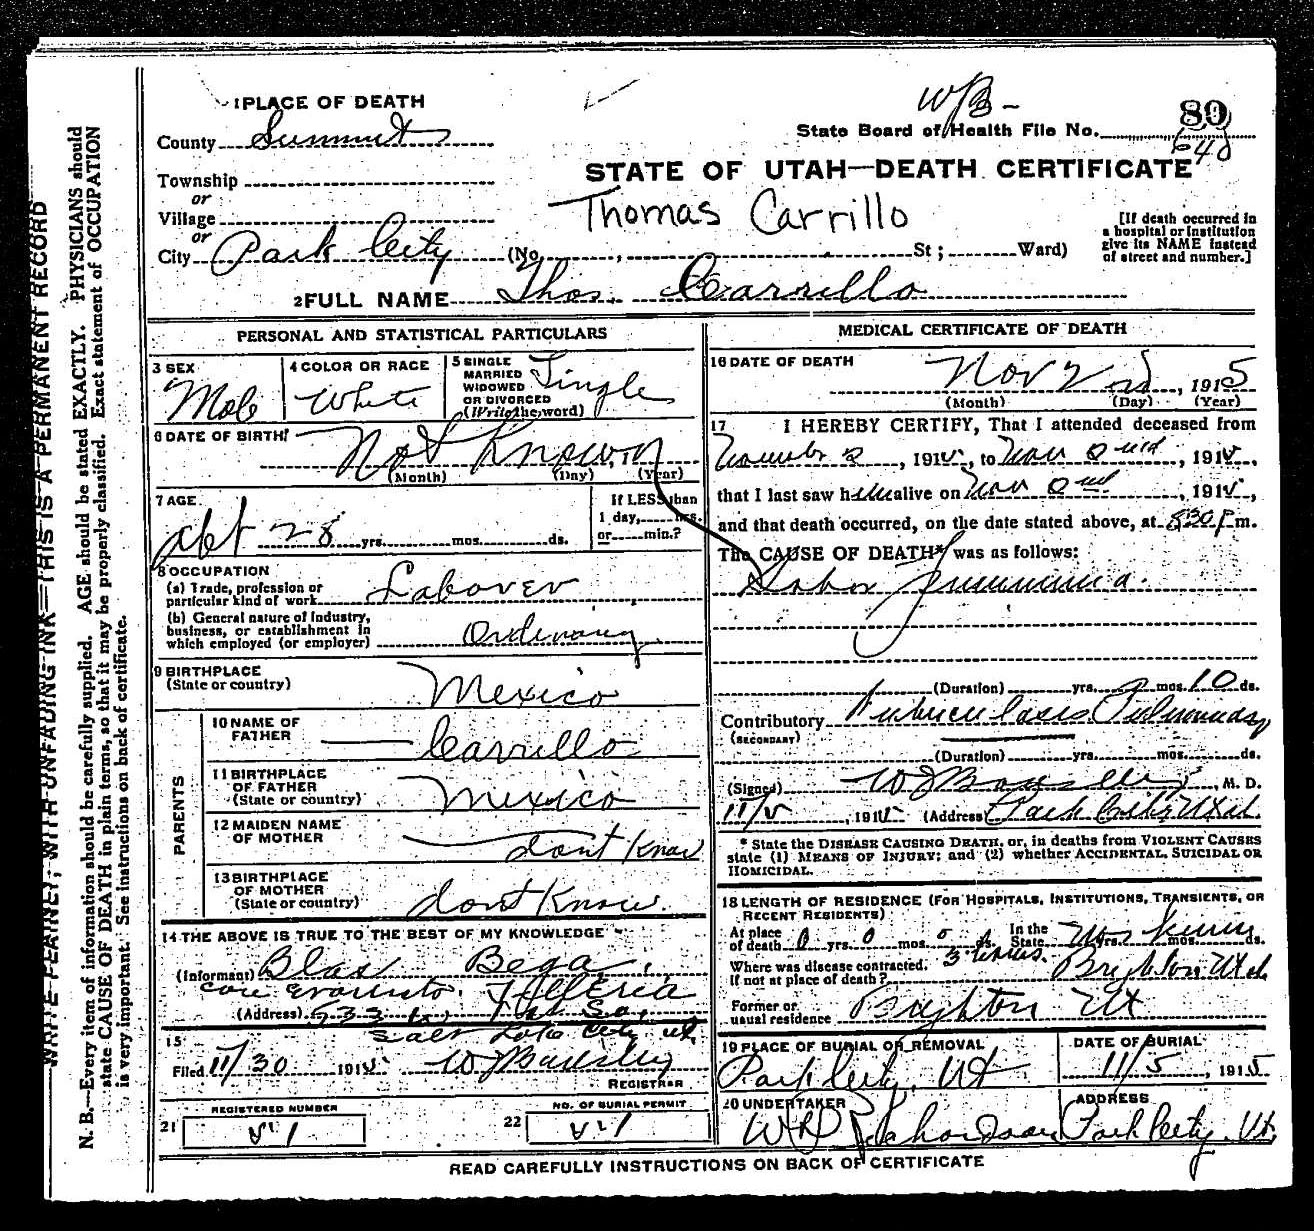 1 PLACE OF DEATH
County Summit
Township
or
Village
or
City Park City (No. , St ; Ward)
WB-
State Board of Health File No. 80
640
STATE OF UTAH—DEATH CERTIFICATE
Thomas Carrillo
[If death occurred in a hospital or institution give its NAME instead of street and number.]
2 FULL NAME Thos. Carrillo
PERSONAL AND STATISTICAL PARTICULARS
3 SEX
Male
4 COLOR OR RACE
White
5 SINGLE MARRIED WIDOWED OR DIVORCED (Write the word)
Single
6 DATE OF BIRTH
Not Known, 1
(Month) (Day) (Year)
7 AGE
abt 28 yrs. mos. ds.
If LESS than 1 day, hrs. or min.?
8 OCCUPATION
(a) Trade, profession or particular kind of work Laborer
(b) General nature of Industry, business, or establishment in which employed (or employer) Ordinary
9 BIRTHPLACE (State or country) Mexico
PARENTS
10 NAME OF FATHER Carrillo
11 BIRTHPLACE OF FATHER (State or country) Mexico
12 MAIDEN NAME OF MOTHER dont Know
13 BIRTHPLACE OF MOTHER (State or country) dont Know.
14 THE ABOVE IS TRUE TO THE BEST OF MY KNOWLEDGE
(Informant) Blas Bega,
care Evaristo
(Address) 533 So,
Salt Lake City ut.
15
Filed 11/30 191
REGISTRAR
21 REGISTERED NUMBER
22 NO. OF BURIAL PERMIT
MEDICAL CERTIFICATE OF DEATH
16 DATE OF DEATH
Nov 2nd, 1915
(Month) (Day) (Year)
17 I HEREBY CERTIFY, That I attended deceased from
, 191 , to Nov , 191 ,
that I last saw h alive on Nov , 191 ,
and that death occurred, on the date stated above, at 830 P m.
The CAUSE OF DEATH* was as follows:
Lobar Pneumonia.
(Duration) yrs. mos. 10 ds.
Contributory Tuberculosis Pulmonary
(SECONDARY)
(Duration) yrs. mos. ds.
(Signed) , M. D.
11/ , 191 (Address) Park City Utah.
* State the DISEASE CAUSING DEATH, or, in deaths from VIOLENT CAUSES state (1) MEANS OF INJURY; and (2) whether ACCIDENTAL, SUICIDAL OR HOMICIDAL.
18 LENGTH OF RESIDENCE (FOR HOSPITALS, INSTITUTIONS, TRANSIENTS, OR RECENT RESIDENTS)
At place of death 0 yrs. 0 mos. 0 ds. In the State yrs. mos. ds.
3 hours.
Where was disease contracted, if not at place of death? Brighton Utah
Former or usual residence Brighton Ut
19 PLACE OF BURIAL OR REMOVAL
Park City, Ut
DATE OF BURIAL
11/5, 1915
20 UNDERTAKER
ADDRESS
Park City, Ut,
READ CAREFULLY INSTRUCTIONS ON BACK OF CERTIFICATE
WRITE PLAINLY, WITH UNFADING INK—THIS IS A PERMANENT RECORD
N. B.—Every item of information should be carefully supplied. AGE should be stated EXACTLY. PHYSICIANS should
state CAUSE OF DEATH in plain terms, so that it may be properly classified. Exact statement of OCCUPATION
is very important. See instructions on back of certificate.